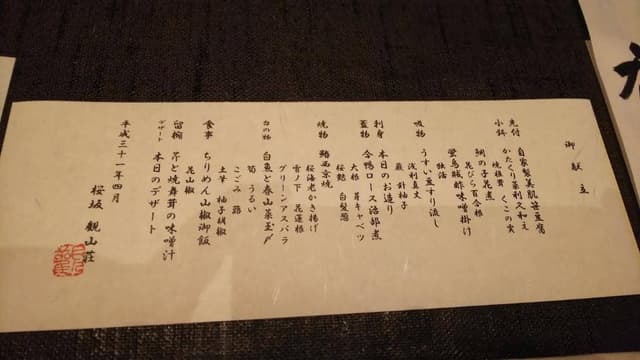 御献立
先付 自家製美肌笹豆腐
小鉢 かたくり菜利久和え
焼椎茸 くこの実
鯛の子花煮
花びら百合根
蛍烏賊酢味噌掛け
独活
吸物 うすい豆すり流し
浅利真丈
蕨 針柚子
刺身 本日のお造り
蓋物 合鴨ロース治部煮
大根 芽キャベツ
桜麩 白髪葱
焼物 鰆西京焼
桜海老かき揚げ
雪ノ下 花蓮根
グリーンアスパラ
台の物 白魚と春山菜玉〆
筍 うるい
こごみ 蕗
土筆 柚子胡椒
食事 ちりめん山椒御飯
花山椒
留椀 芹と焼舞茸の味噌汁
デザート 本日のデザート
平成三十一年四月
桜坂 観山荘